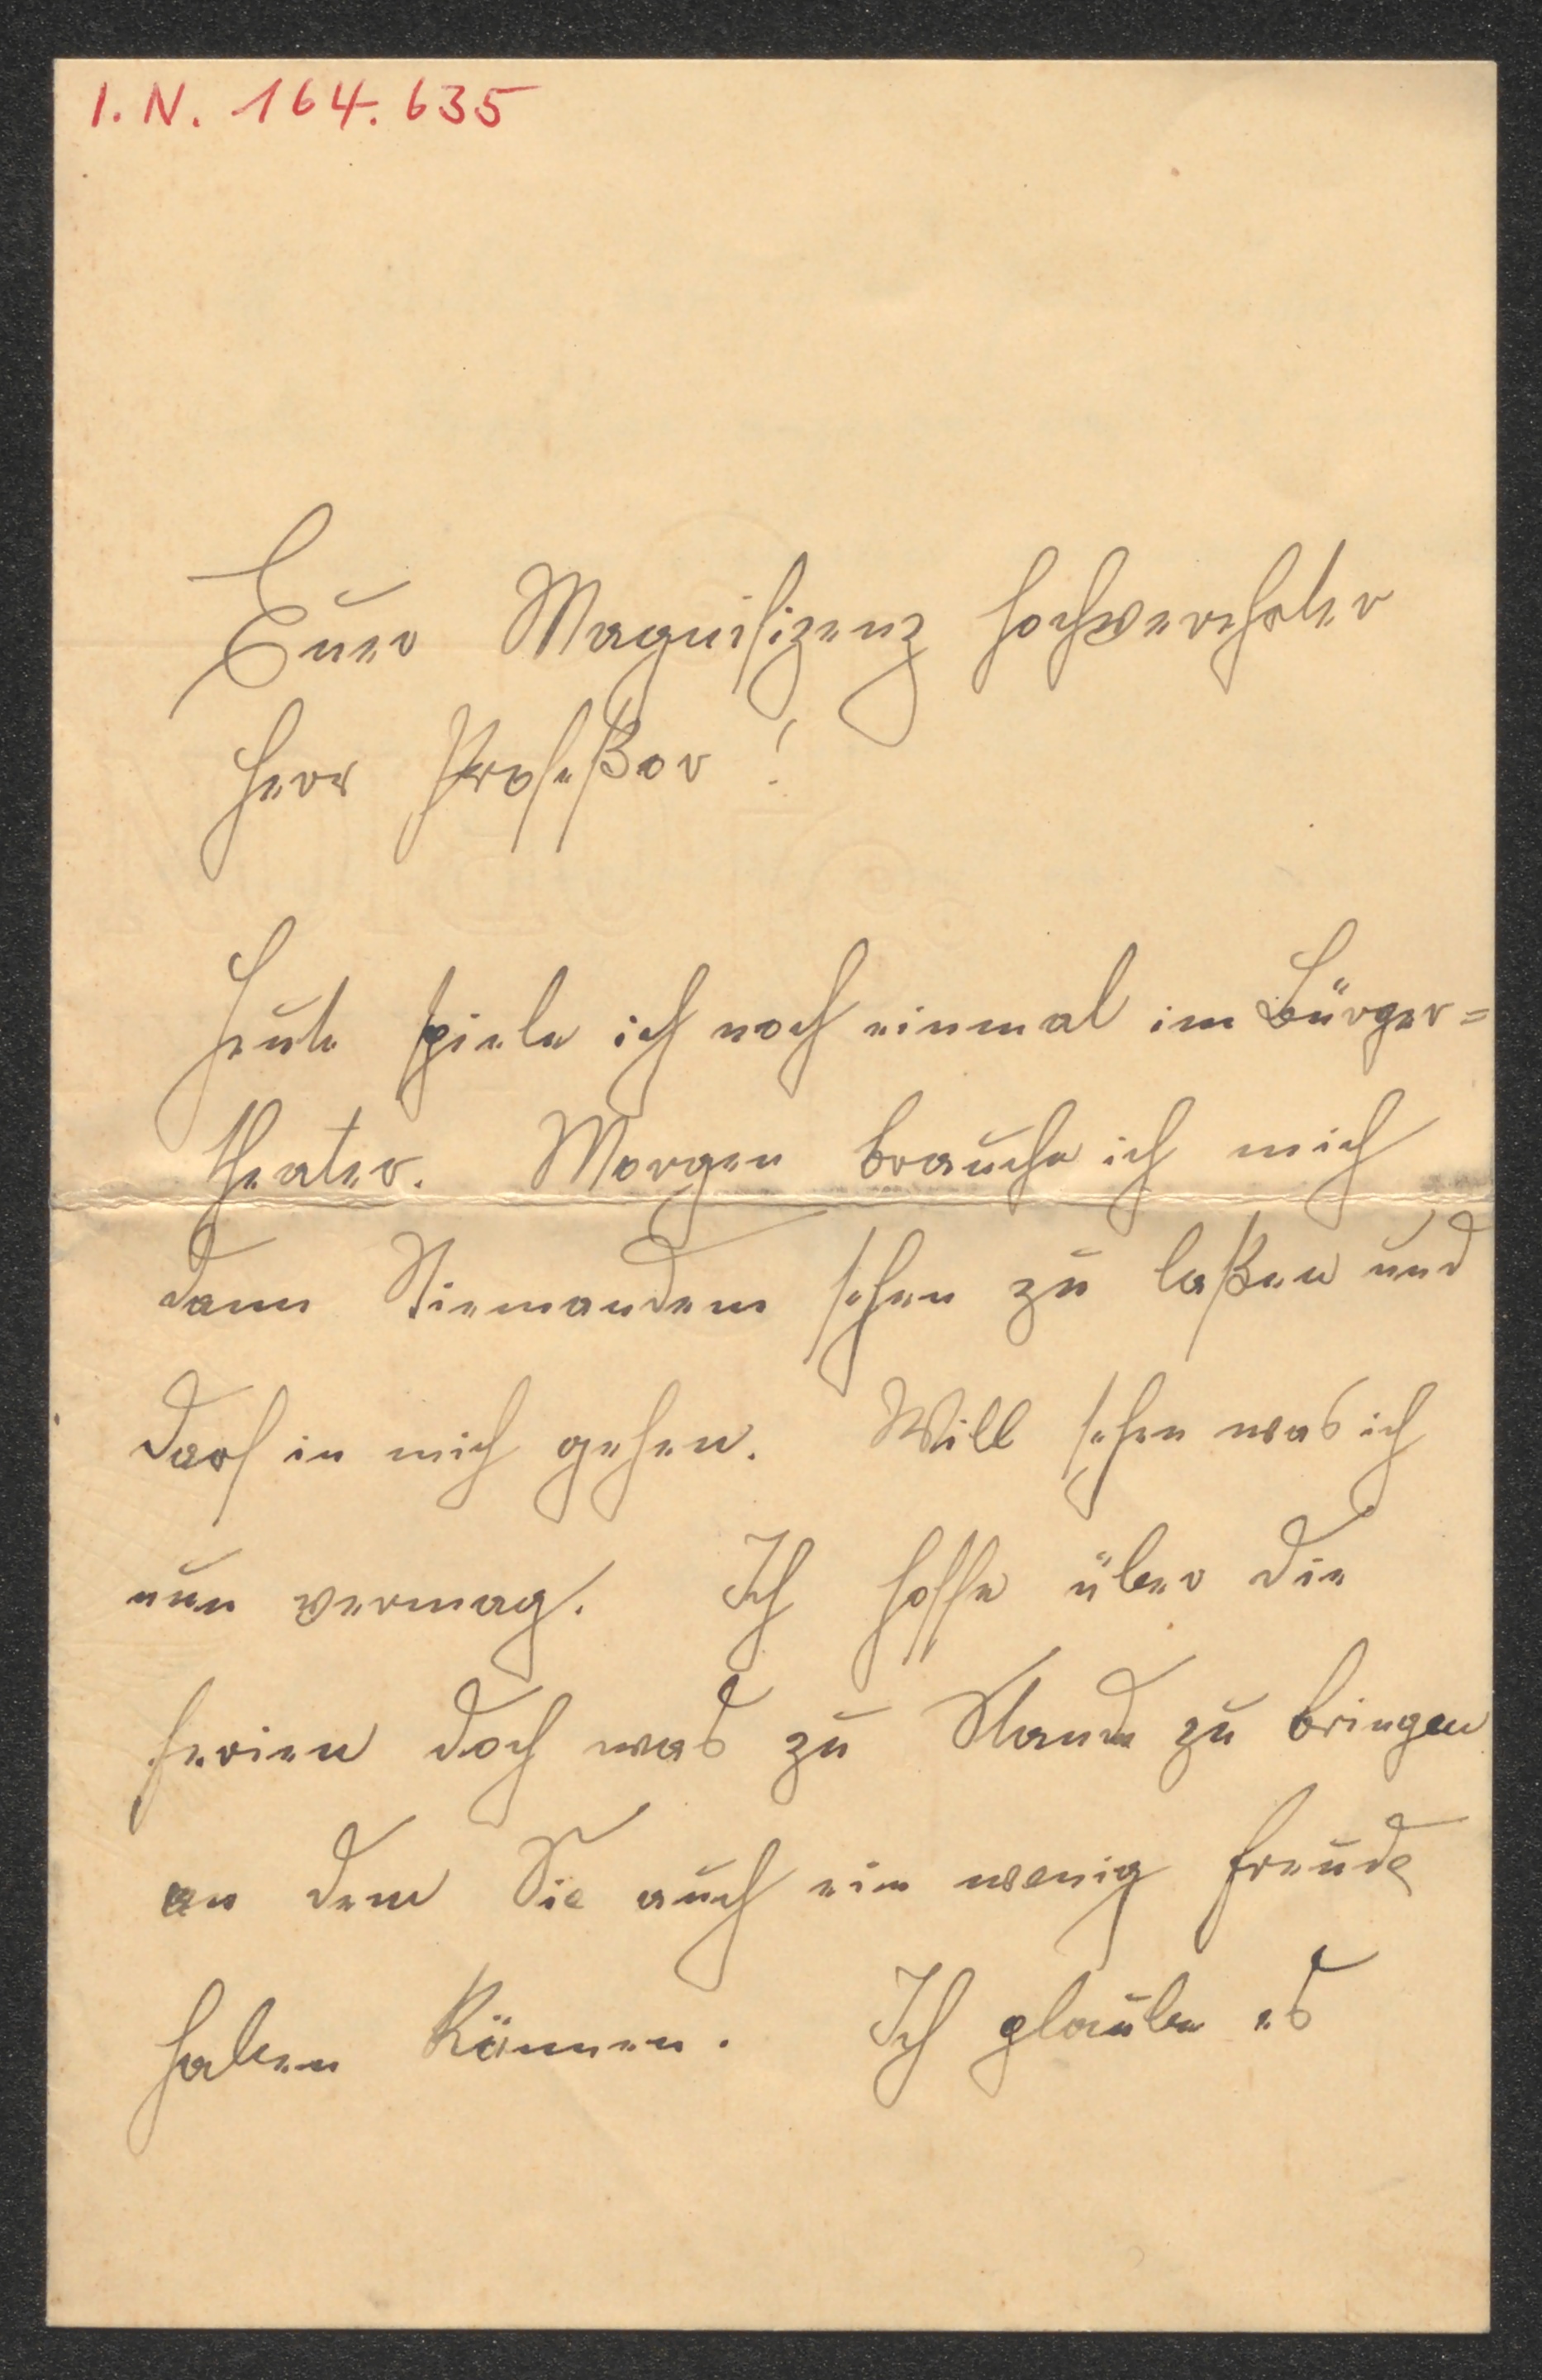 I. N. 164.635
Euer Magnifizenz hochverehrter
Herr Profeßor!
Heute spiele ich noch einmal im Bürger=
theater. Morgen brauche ich mich
dann Niemandem sehen zu laßen und
darf in mich gehen. Will sehen was ich
nun vermag. Ich hoffe über die
Ferien doch was zu Stande zu bringen
an dem Sie auch ein wenig Freude
haben können. Ich glaube es